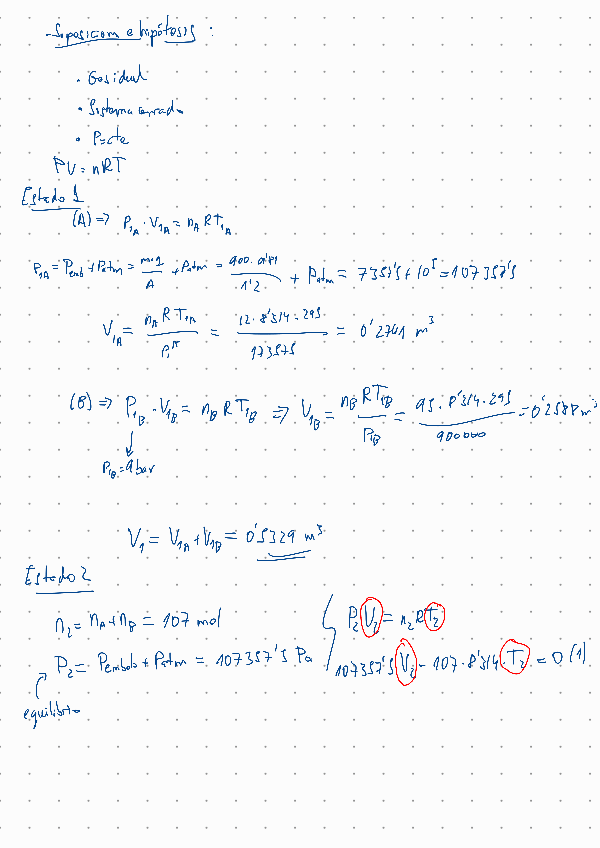 - Suposicom e hipótesis :
• Gas ideal
• Sistema cerrado
• P=cte
PV = nRT
Estado 1
(A) => P1A · V1A = nA R T1A
P1A = Pemb + Patm = m·g/A + Patm = 900·9'81/1'2 + Patm = 7357'5 + 10^5 = 107357'5
V1A = nA R T1A / P1A = 12·8'314·295 / 107357'5 = 0'2741 m³
(B) => P1B · V1B = nB R T1B => V1B = nB R T1B / P1B = 95·8'314·295 / 900000 = 0'2588 m³
P1B = 9 bar
V1 = V1A + V1B = 0'5329 m³
Estado 2
n2 = nA + nB = 107 mol
P2 V2 = n2 R T2
P2 = Pembolo + Patm = 107357'5 Pa
107357'5 V2 - 107·8'314·T2 = 0 (1)
equilibrio